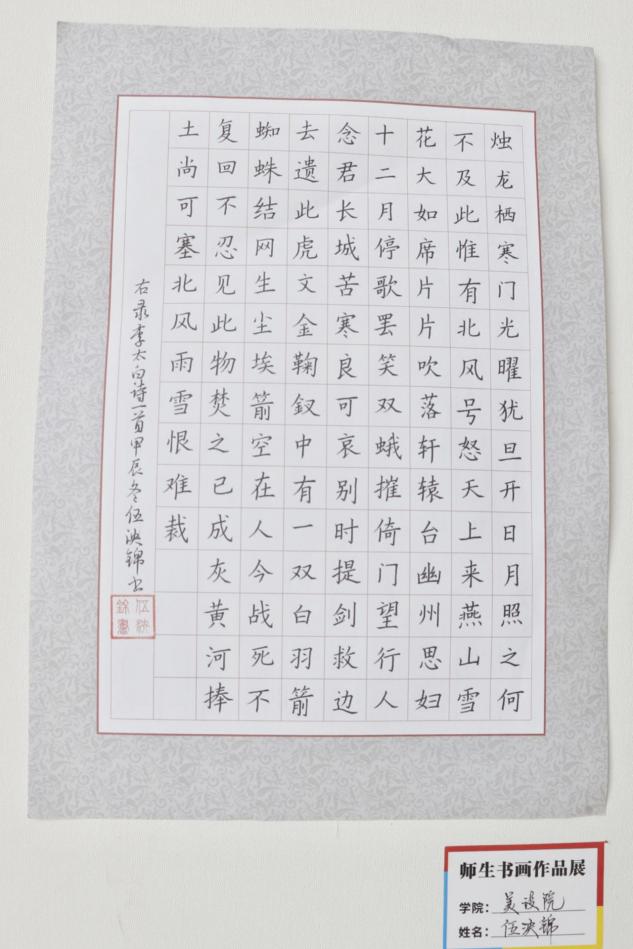 烛龙栖寒门光曜犹旦开日月照之何
不及此惟有北风号怒天上来燕山雪
花大如席片片吹落轩辕台幽州思妇
十二月停歌罢笑双蛾摧倚门望行人
念君长城苦寒良可哀别时提剑救边
去遗此虎文金鞠釵中有一双白羽箭
蜘蛛结网生尘埃箭空在人今战死不
复回不忍见此物焚之已成灰黄河捧
土尚可塞北风雨雪恨难裁
右录李太白诗一首甲辰冬伍泱锦书
师生书画作品展
学院：美设院
姓名：伍泱锦